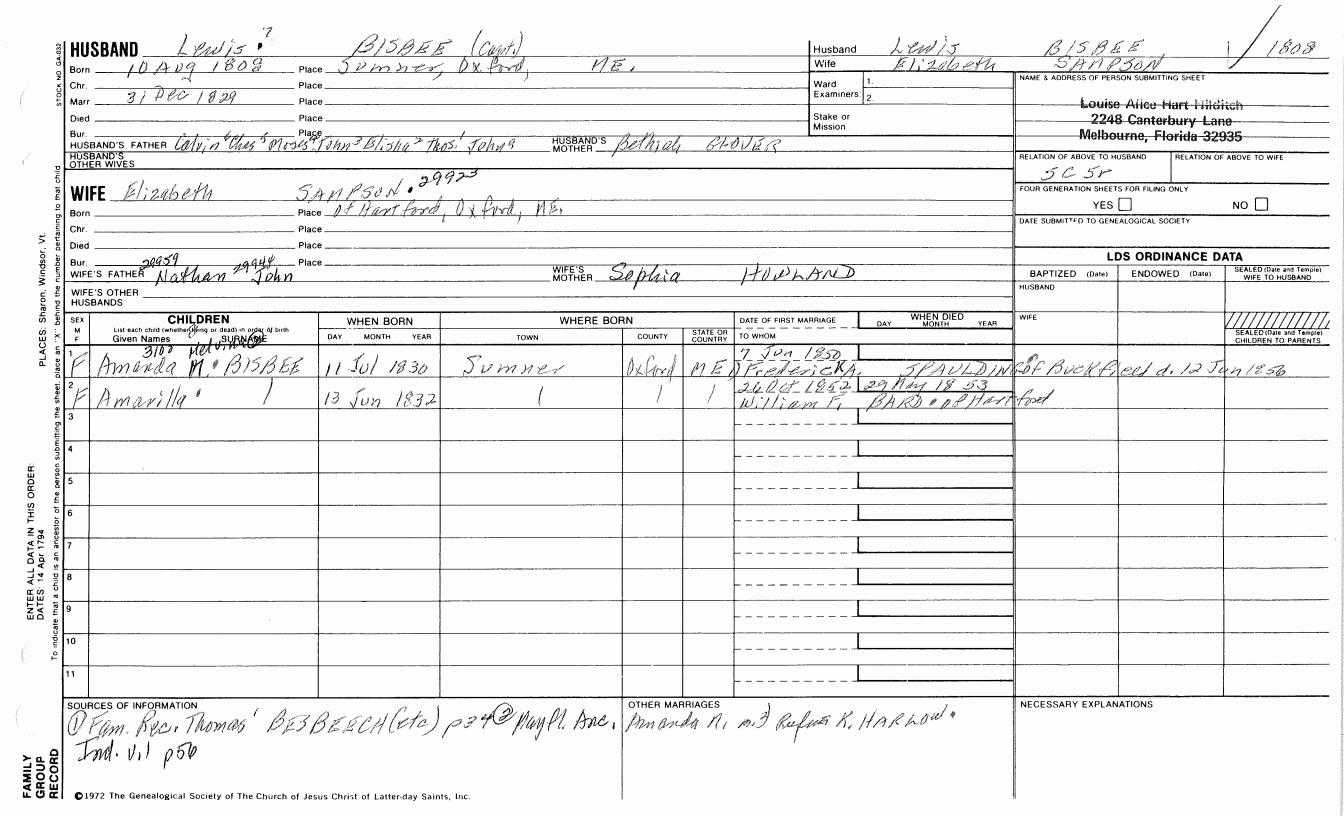 7
HUSBAND Lewis BISBEE (Capt.)
Born 10 Aug 1808 Place Sumner, Oxford, ME.
Chr. Place
Marr 31 Dec 1829 Place
Died Place
Bur. Place
HUSBAND'S FATHER Calvin Chas Moses John Elisha Thos. John HUSBAND'S MOTHER Bethiah GLOVER
HUSBAND'S OTHER WIVES
WIFE Elizabeth SAMPSON. 29923
Born Place Of Hartford, Oxford, ME.
Chr. Place
Died Place
Bur. Place
29959 29944
WIFE'S FATHER Nathan John WIFE'S MOTHER Sophia HOWLAND
WIFE'S OTHER HUSBANDS
Husband Lewis BISBEE 1/1808
Wife Elizabeth SAMPSON
Ward Examiners 1. 2.
Stake or Mission
NAME & ADDRESS OF PERSON SUBMITTING SHEET
Louise Alice Hart Hilditch
2248 Canterbury Lane
Melbourne, Florida 32935
RELATION OF ABOVE TO HUSBAND RELATION OF ABOVE TO WIFE
5C 5r
FOUR GENERATION SHEETS FOR FILING ONLY
YES NO
DATE SUBMITTED TO GENEALOGICAL SOCIETY
LDS ORDINANCE DATA
BAPTIZED (Date) ENDOWED (Date) SEALED (Date and Temple) WIFE TO HUSBAND
HUSBAND
WIFE
SEALED (Date and Temple) CHILDREN TO PARENTS
SEX M F
CHILDREN
List each child (whether living or dead) in order of birth
Given Names SURNAME
WHEN BORN DAY MONTH YEAR
WHERE BORN TOWN COUNTY STATE OR COUNTRY
DATE OF FIRST MARRIAGE TO WHOM
WHEN DIED DAY MONTH YEAR
3100 7 Jun 1850
1 F Amanda M. BISBEE 11 Jul 1830 Sumner Oxford ME Frederick A. SPAULDING of Buckfield d. 12 Jun 1856
26 Oct 1852 29 May 1853
2 F Amarilla 13 Jun 1832 William F. BARD of Hartford
3
4
5
6
7
8
9
10
11
SOURCES OF INFORMATION
① Fam. Rec. Thomas' BESBEECH (etc) p34 ② Mayfl. Anc.
Ind. V.1 p56
OTHER MARRIAGES
Amanda m. Rufus K. HARLOW.
NECESSARY EXPLANATIONS
©1972 The Genealogical Society of The Church of Jesus Christ of Latter-day Saints, Inc.
STOCK NO GA-032
PLACES: Sharon, Windsor, Vt.
ENTER ALL DATA IN THIS ORDER:
DATES: 14 Apr 1794
To indicate that a child is an ancestor of the person submitting the sheet, place an "X" behind the number pertaining to that child
FAMILY GROUP RECORD